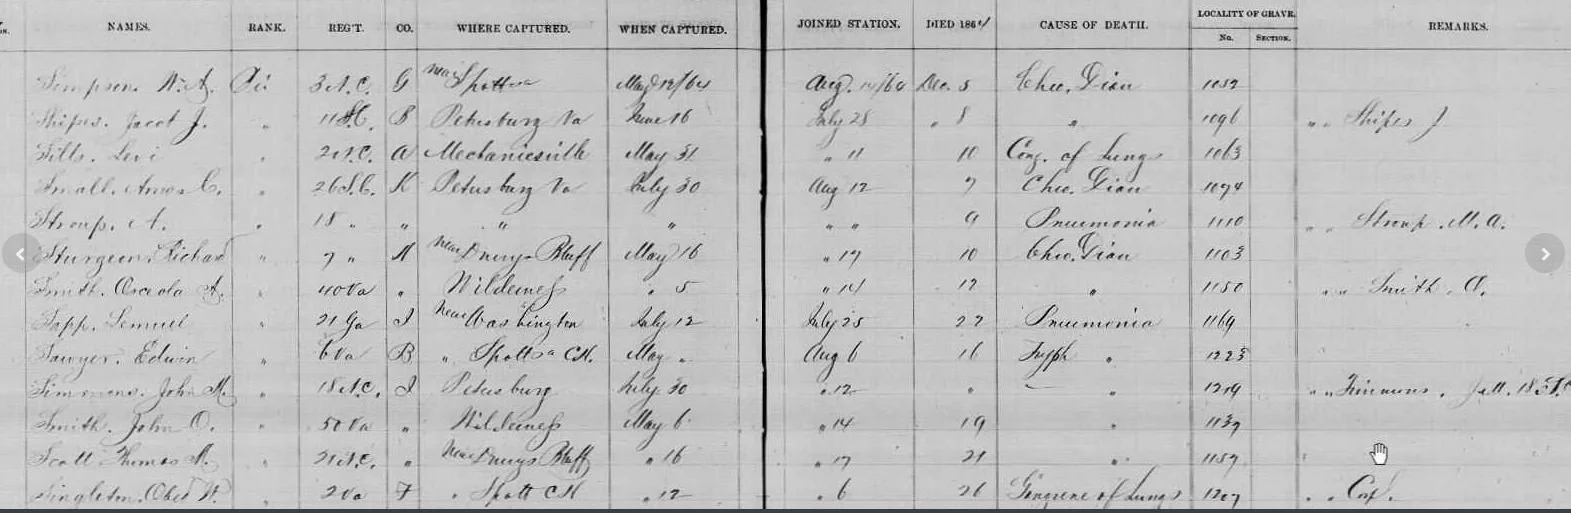 NAMES. RANK. REG'T. CO. WHERE CAPTURED. WHEN CAPTURED. JOINED STATION. DIED 1864 CAUSE OF DEATH. LOCALITY OF GRAVE. No. SECTION. REMARKS.
Simpson. W. A. Pri 3 N.C. G near Spottsa May 12/64 Aug. 14/64 Dec. 5 Chro. Diar 1052
Shipes. Jacob J. " 11 S.C. B Petersburg Va June 16 July 28 " 8 " 1096 " " Shipes J
Sills. Levi " 2 N.C. A Mechanicsville May 31 " 11 10 Cong. of Lungs 1063
Small. Amos C. " 26 S.C. K Petersburg Va July 30 Aug 12 7 Chro. Diar 1074
Stroup. A. " 18 " " " " " " 9 Pneumonia 1110 " " Stroup. M. A.
Sturgeon. Richard " 7 " K near Drurys Bluff May 16 " 17 10 Chro. Diar 1103
Smith. Osceola A. " 40 Va " Wilderness " 5 " 14 12 " 1150 " " Smith. O.
Sapp. Lemuel " 21 Ga I near Washington July 12 July 25 22 Pneumonia 1169
Sawyer. Edwin " 6 Va B " Spottsa C.H. May " Aug 6 16 Typh " 1223
Simmons. John M. " 18 N.C. I Petersburg July 30 " 12 " " 1214 " "
Smith. John O. " 50 Va " Wilderness May 6 " 14 19 " 1139
Scott Thomas M. " 21 N.C. " near Drurys Bluff " 16 " 17 21 " 1157
Singleton. Obed W. " 2 Va F " Spott C.H " 12 " 6 26 Gangrene of Lungs 1207 " "